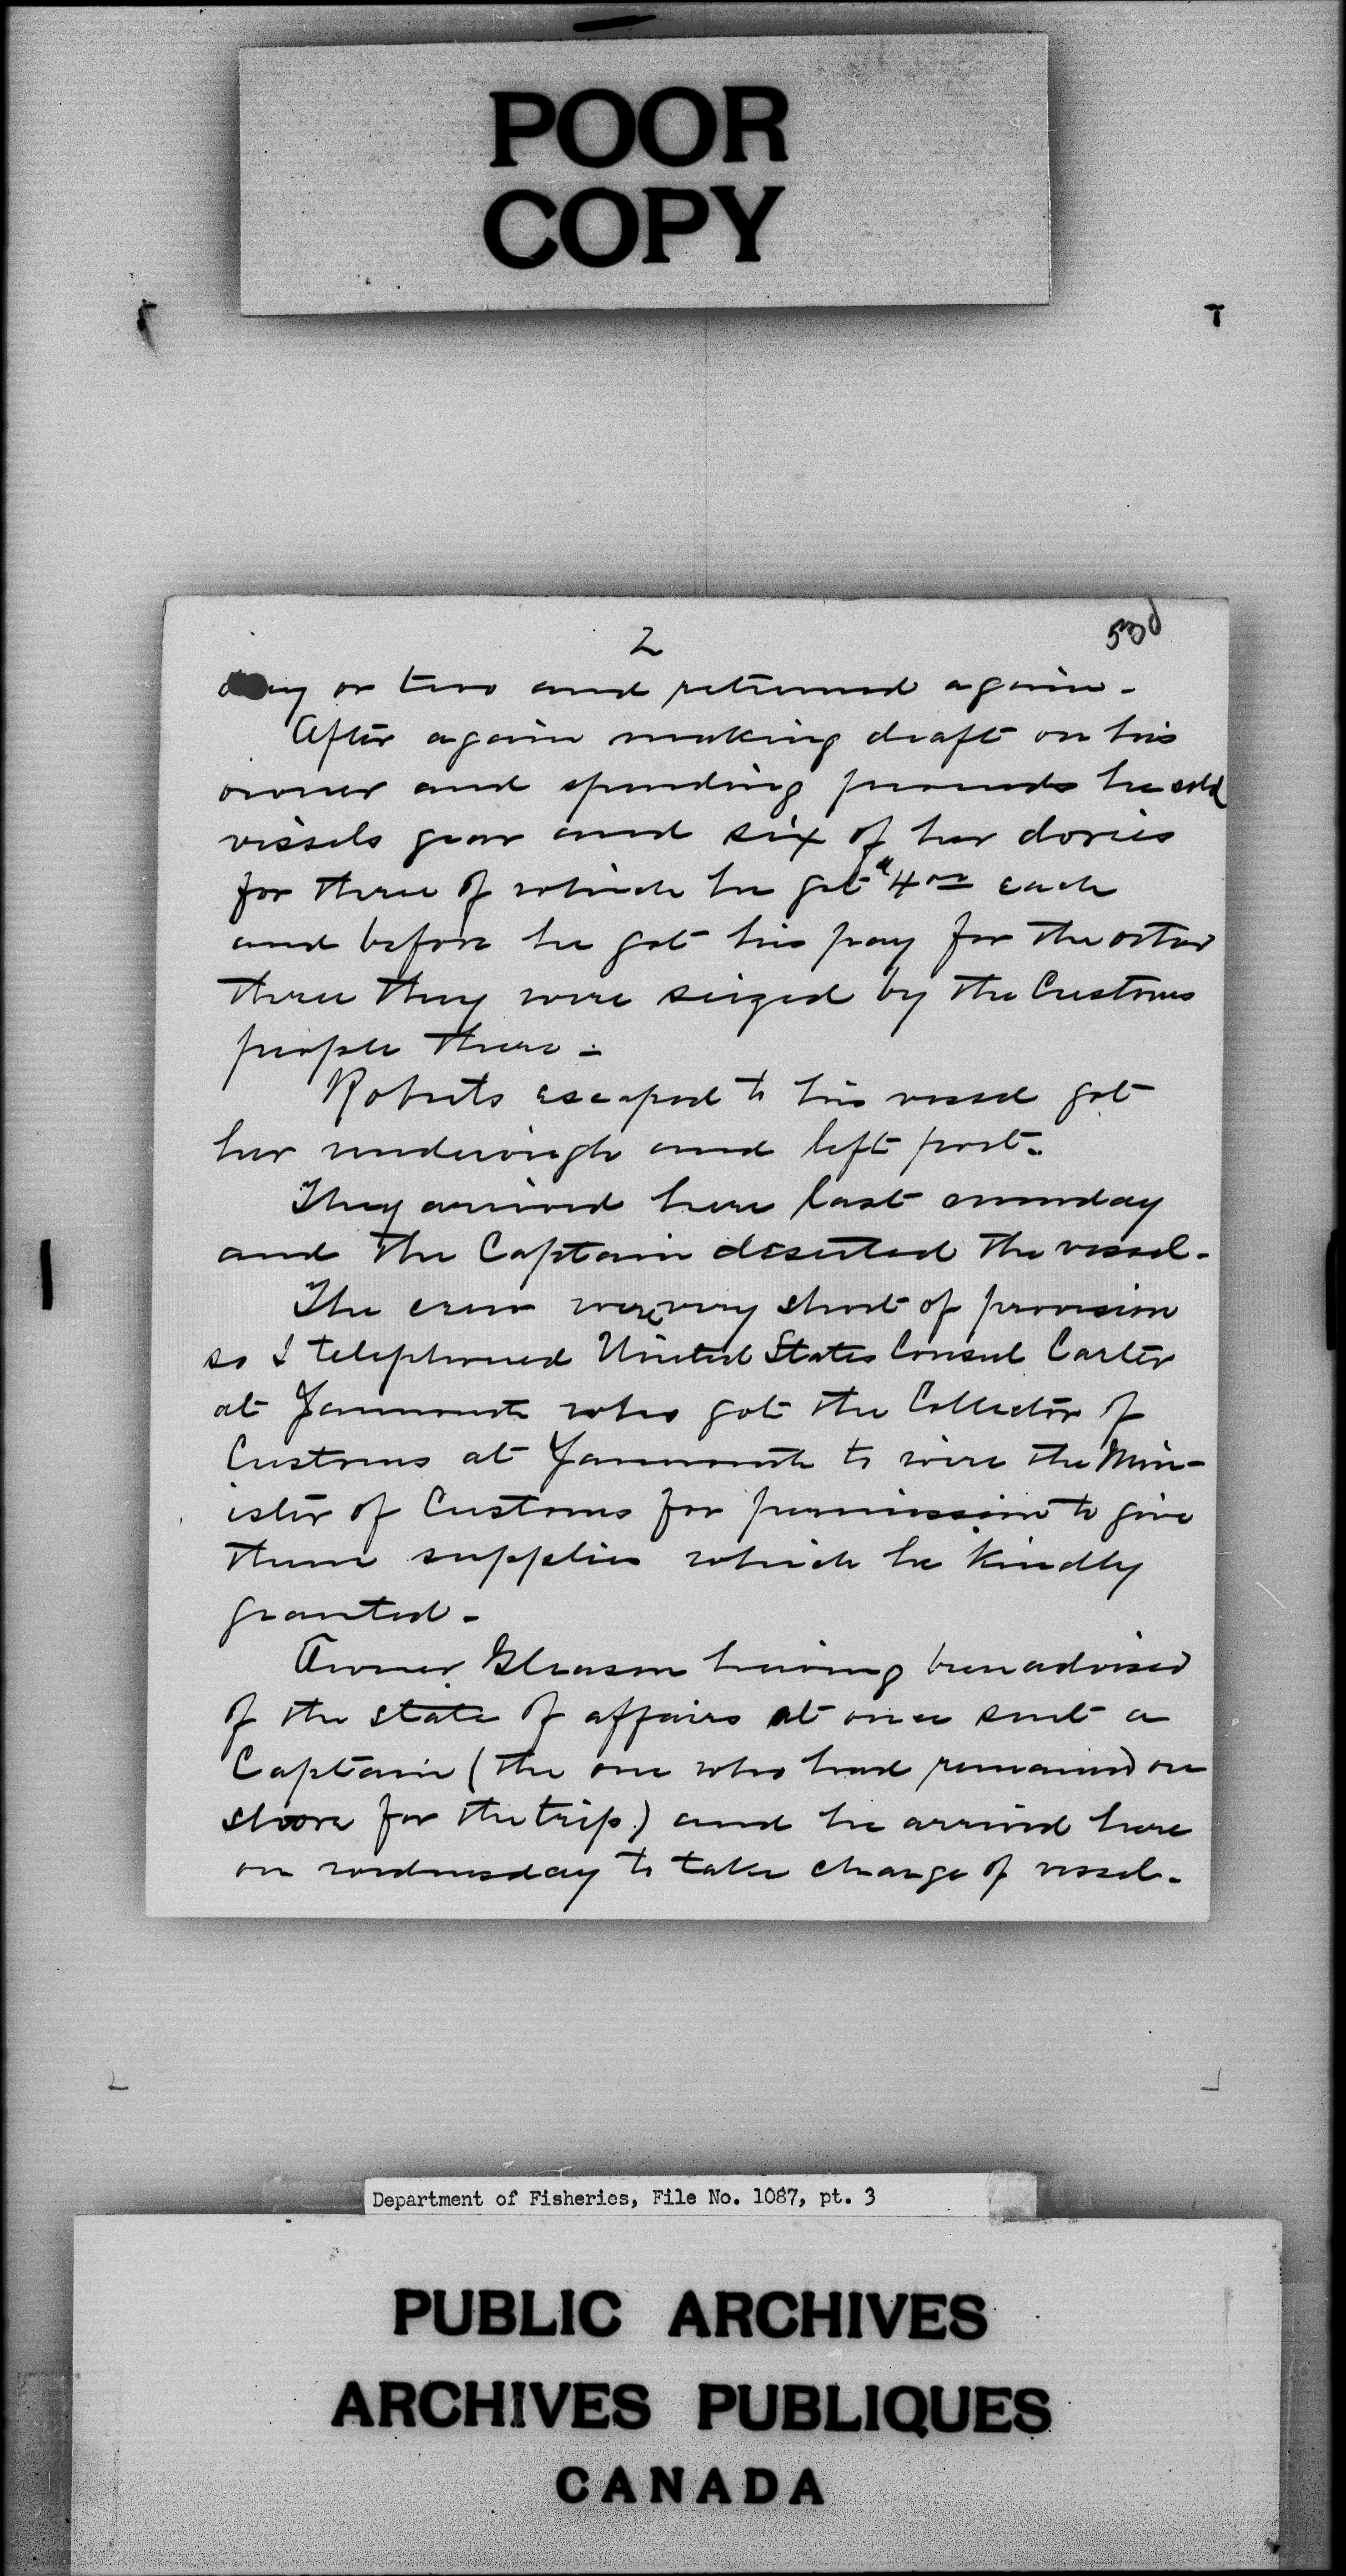 POOR
COPY
2
53d
day or two and returned again.
After again making draft on his
owner and spending proceeds he sold
vessels gear and six of her dories
for three of which he got $4.00 each
and before he got his pay for the other
three they were seized by the Customs
people there.
Roberts escaped to his vessel got
her underweigh and left port.
They arrived here last sunday
and the Captain deserted the vessel.
The crew were very short of provision
so I telephoned United States Consul Carter
at Yarmouth who got the Collector of
Customs at Yarmouth to wire the Min-
ister of Customs for permission to give
them supplies which he kindly
granted.
Owner Gleason having been advised
of the state of affairs at once sent a
Captain (the one who had remained on
shore for the trip.) and he arrived here
on wednesday to take charge of vessel.
Department of Fisheries, File No. 1087, pt. 3
PUBLIC ARCHIVES
ARCHIVES PUBLIQUES
CANADA